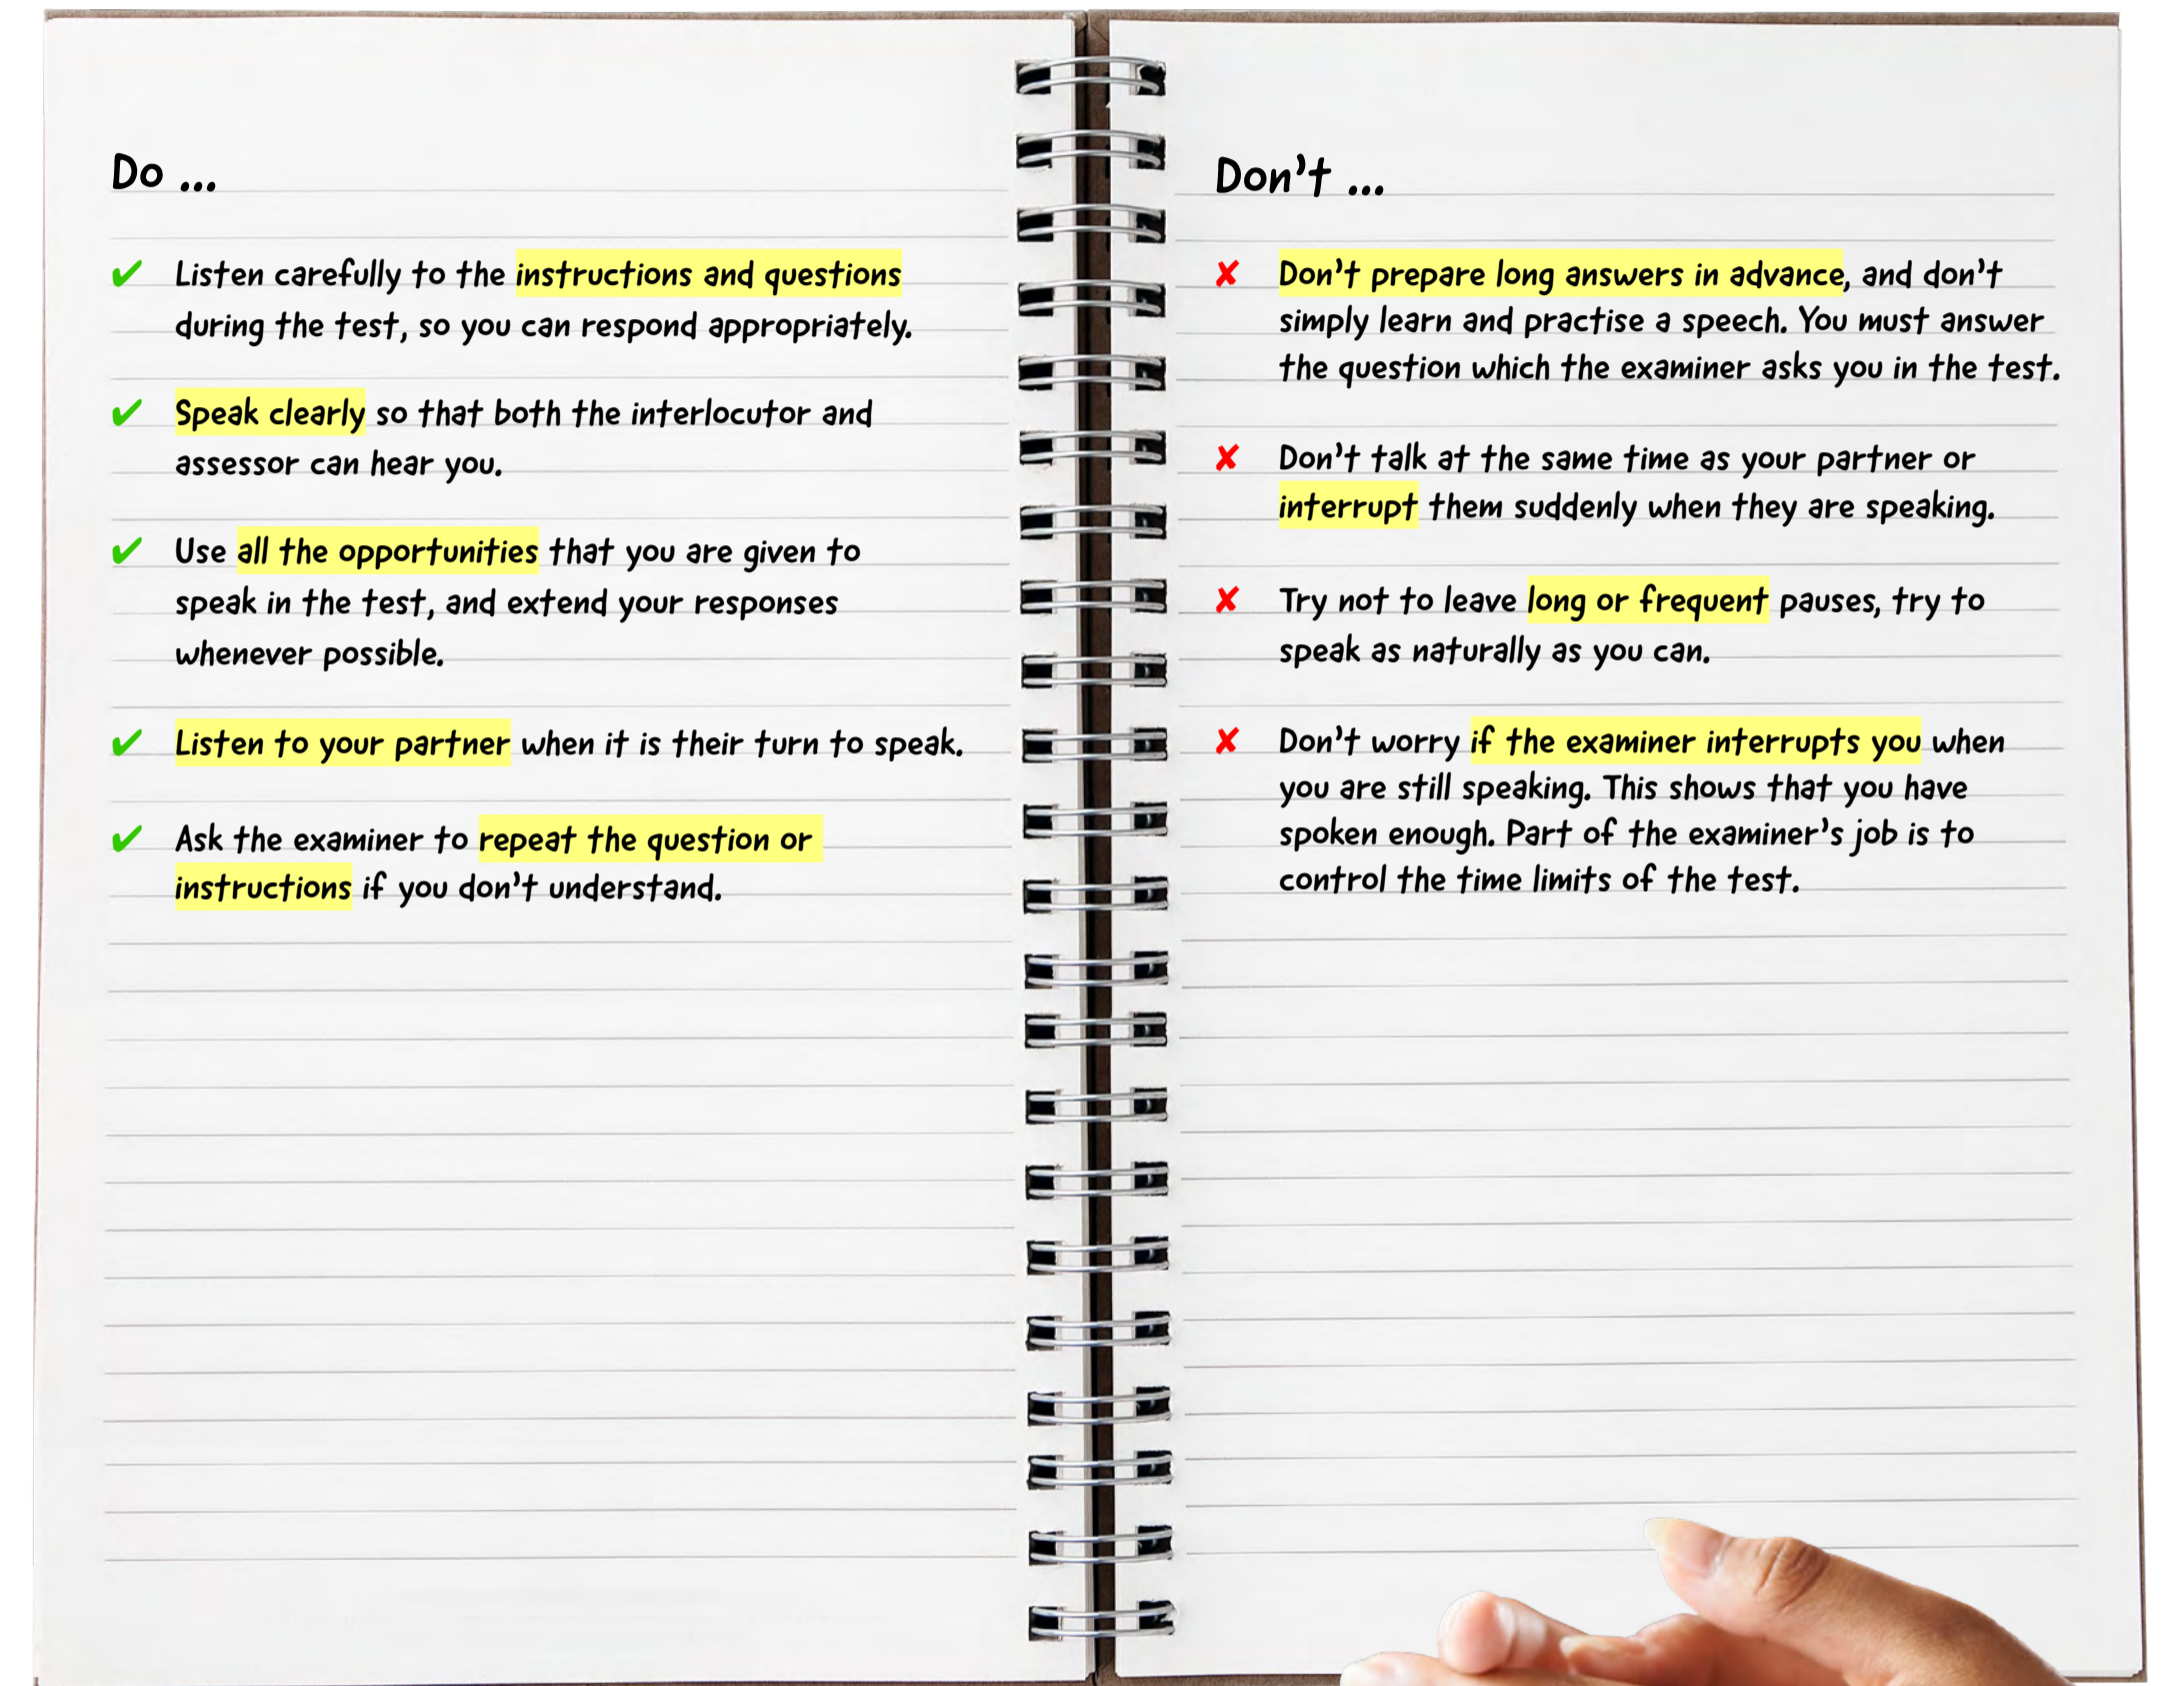 Do ...
✔ Listen carefully to the instructions and questions
during the test, so you can respond appropriately.
✔ Speak clearly so that both the interlocutor and
assessor can hear you.
✔ Use all the opportunities that you are given to
speak in the test, and extend your responses
whenever possible.
✔ Listen to your partner when it is their turn to speak.
✔ Ask the examiner to repeat the question or
instructions if you don't understand.
Don't ...
✘ Don't prepare long answers in advance, and don't
simply learn and practise a speech. You must answer
the question which the examiner asks you in the test.
✘ Don't talk at the same time as your partner or
interrupt them suddenly when they are speaking.
✘ Try not to leave long or frequent pauses, try to
speak as naturally as you can.
✘ Don't worry if the examiner interrupts you when
you are still speaking. This shows that you have
spoken enough. Part of the examiner's job is to
control the time limits of the test.